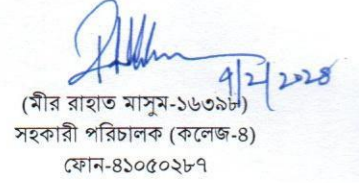 ৭/২/২০২৪
(মীর রাহাত মাসুম-১৬৩৯৮)
সহকারী পরিচালক (কলেজ-৪)
ফোন-৪১০৫০২৮৭